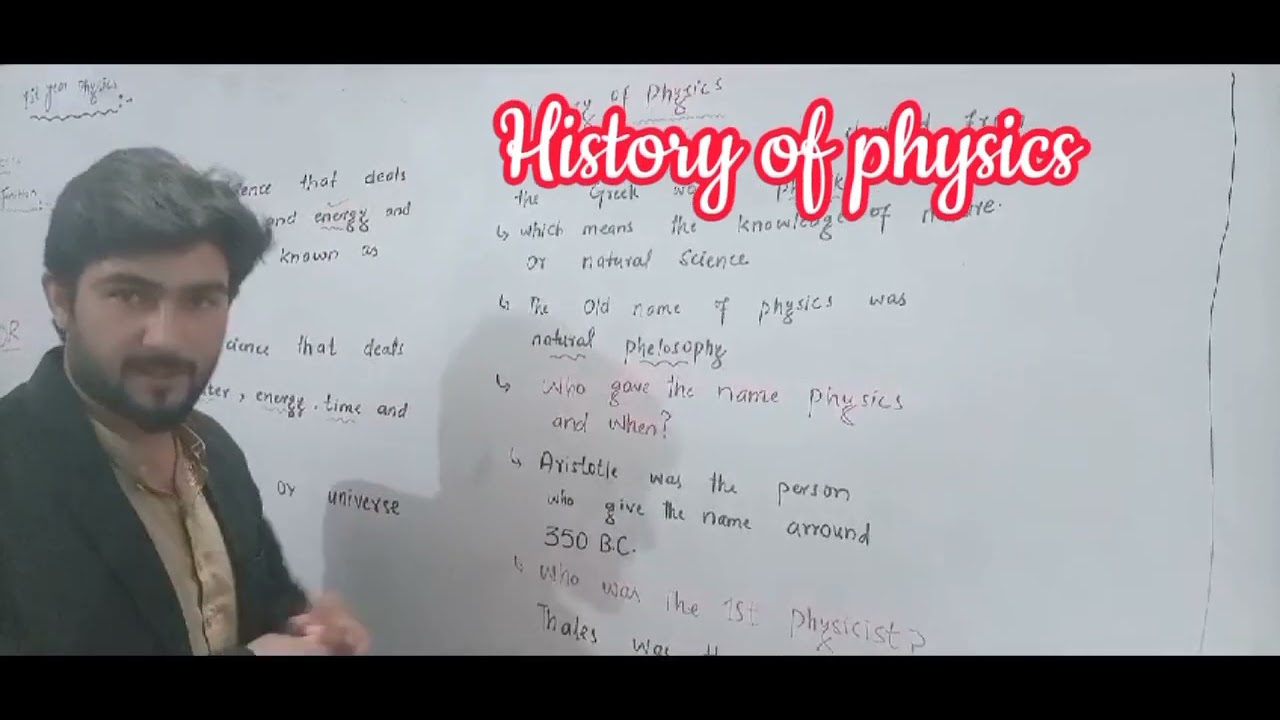 1st year Physics
ence that deals
and energy and
known as
OR
cience that deals
ter, energy, time and
or universe
of Physics
History of physics
the Greek
which means the knowledge of
or natural Science
The Old name of physics was
natural phelosophy
Who gave the name physics
and when?
Aristotle was the person
who give the name arround
350 B.C.
Who was the 1st physicist?
Thales was